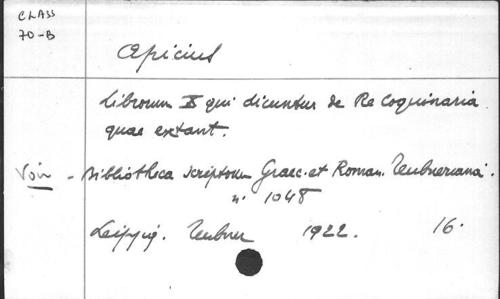 CLASS
70-B
Apicius
Librorum X qui dicuntur de Re Coquinaria
quae extant.
Voir - Bibliotheca scriptorum Graec. et Roman. Teubneriana.
n. 1048
Leipzig. Teubner 1922. 16.